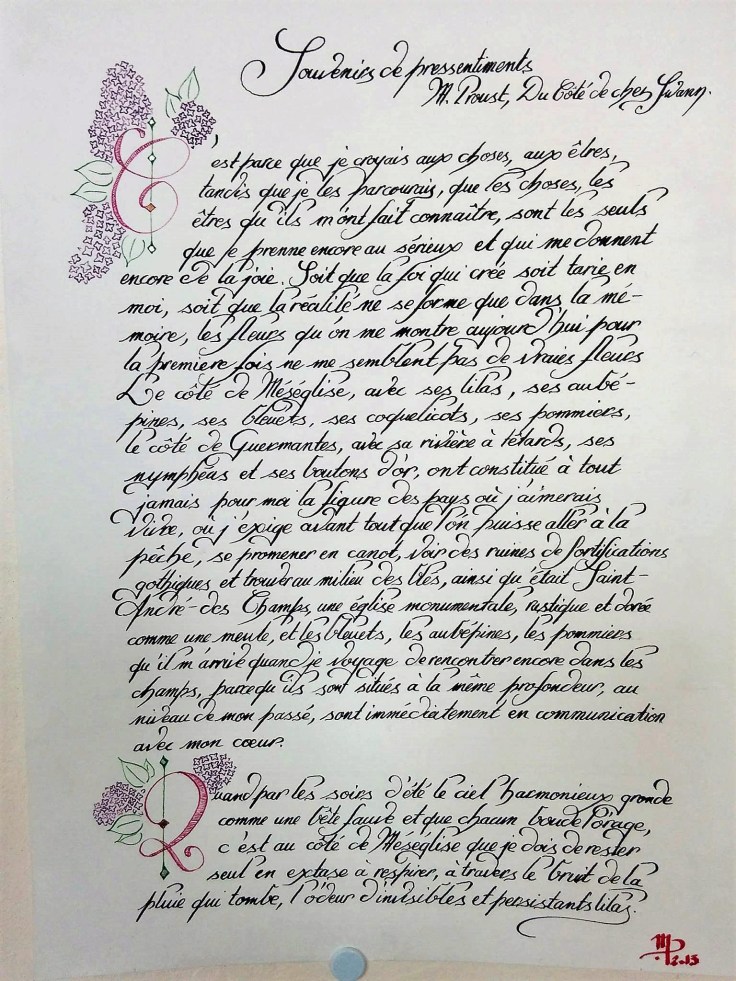 Souvenirs de pressentiments
M. Proust, Du Côté de chez Swann.
C'est parce que je croyais aux choses, aux êtres,
tandis que je les parcourais, que les choses, les
êtres qu'ils m'ont fait connaître, sont les seuls
que je prenne encore au sérieux et qui me donnent
encore de la joie. Soit que la foi qui crée soit tarie en
moi, soit que la réalité ne se forme que dans la mé-
moire, les fleurs qu'on me montre aujourd'hui pour
la première fois ne me semblent pas de vraies fleurs
Le côté de Méséglise, avec ses lilas, ses aubé-
pines, ses bleuets, ses coquelicots, ses pommiers,
le côté de Guermantes, avec sa rivière à têtards, ses
nymphéas et ses boutons d'or, ont constitué à tout
jamais pour moi la figure des pays où j'aimerais
vivre, où j'exige avant tout que l'on puisse aller à la
pêche, se promener en canot, voir des ruines de fortifications
gothiques et trouver au milieu des blés, ainsi qu'était Saint-
André-des Champs, une église monumentale, rustique et dorée
comme une meule, et les bleuets, les aubépines, les pommiers
qu'il m'arrive quand je voyage de rencontrer encore dans les
champs, parce qu'ils sont situés à la même profondeur, au
niveau de mon passé, sont immédiatement en communication
avec mon cœur.
Quand par les soirs d'été le ciel harmonieux gronde
comme une bête fauve et que chacun boude l'orage,
c'est au côté de Méséglise que je dois de rester
seul en extase à respirer, à travers le bruit de la
pluie qui tombe, l'odeur d'invisibles et persistants lilas.
MP
2.13